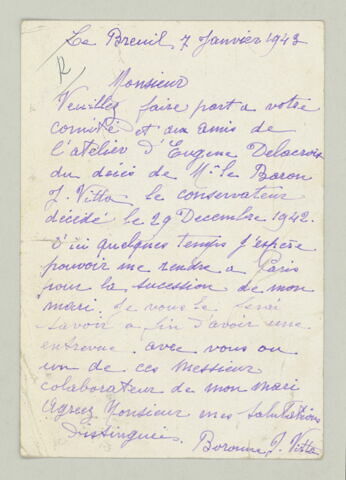 Le Breuil 7 Janvier 1943
R
Monsieur
Veuillez faire part a votre
comité et aux amis de
l'atelier d'Eugene Delacroix
du décés de Mr le Baron
J. Vitta le conservateur
décédé le 29 Decembre 1942.
D'ici quelques temps j'espère
pouvoir me rendre a Paris
pour la sucession de mon
mari. Je vous le ferai
savoir a fin d'avoir une
entrevue avec vous ou
un de ces Messieur
colaborateur de mon mari
Agreez Monsieur mes salutations
distinguées. Baronne J. Vitta